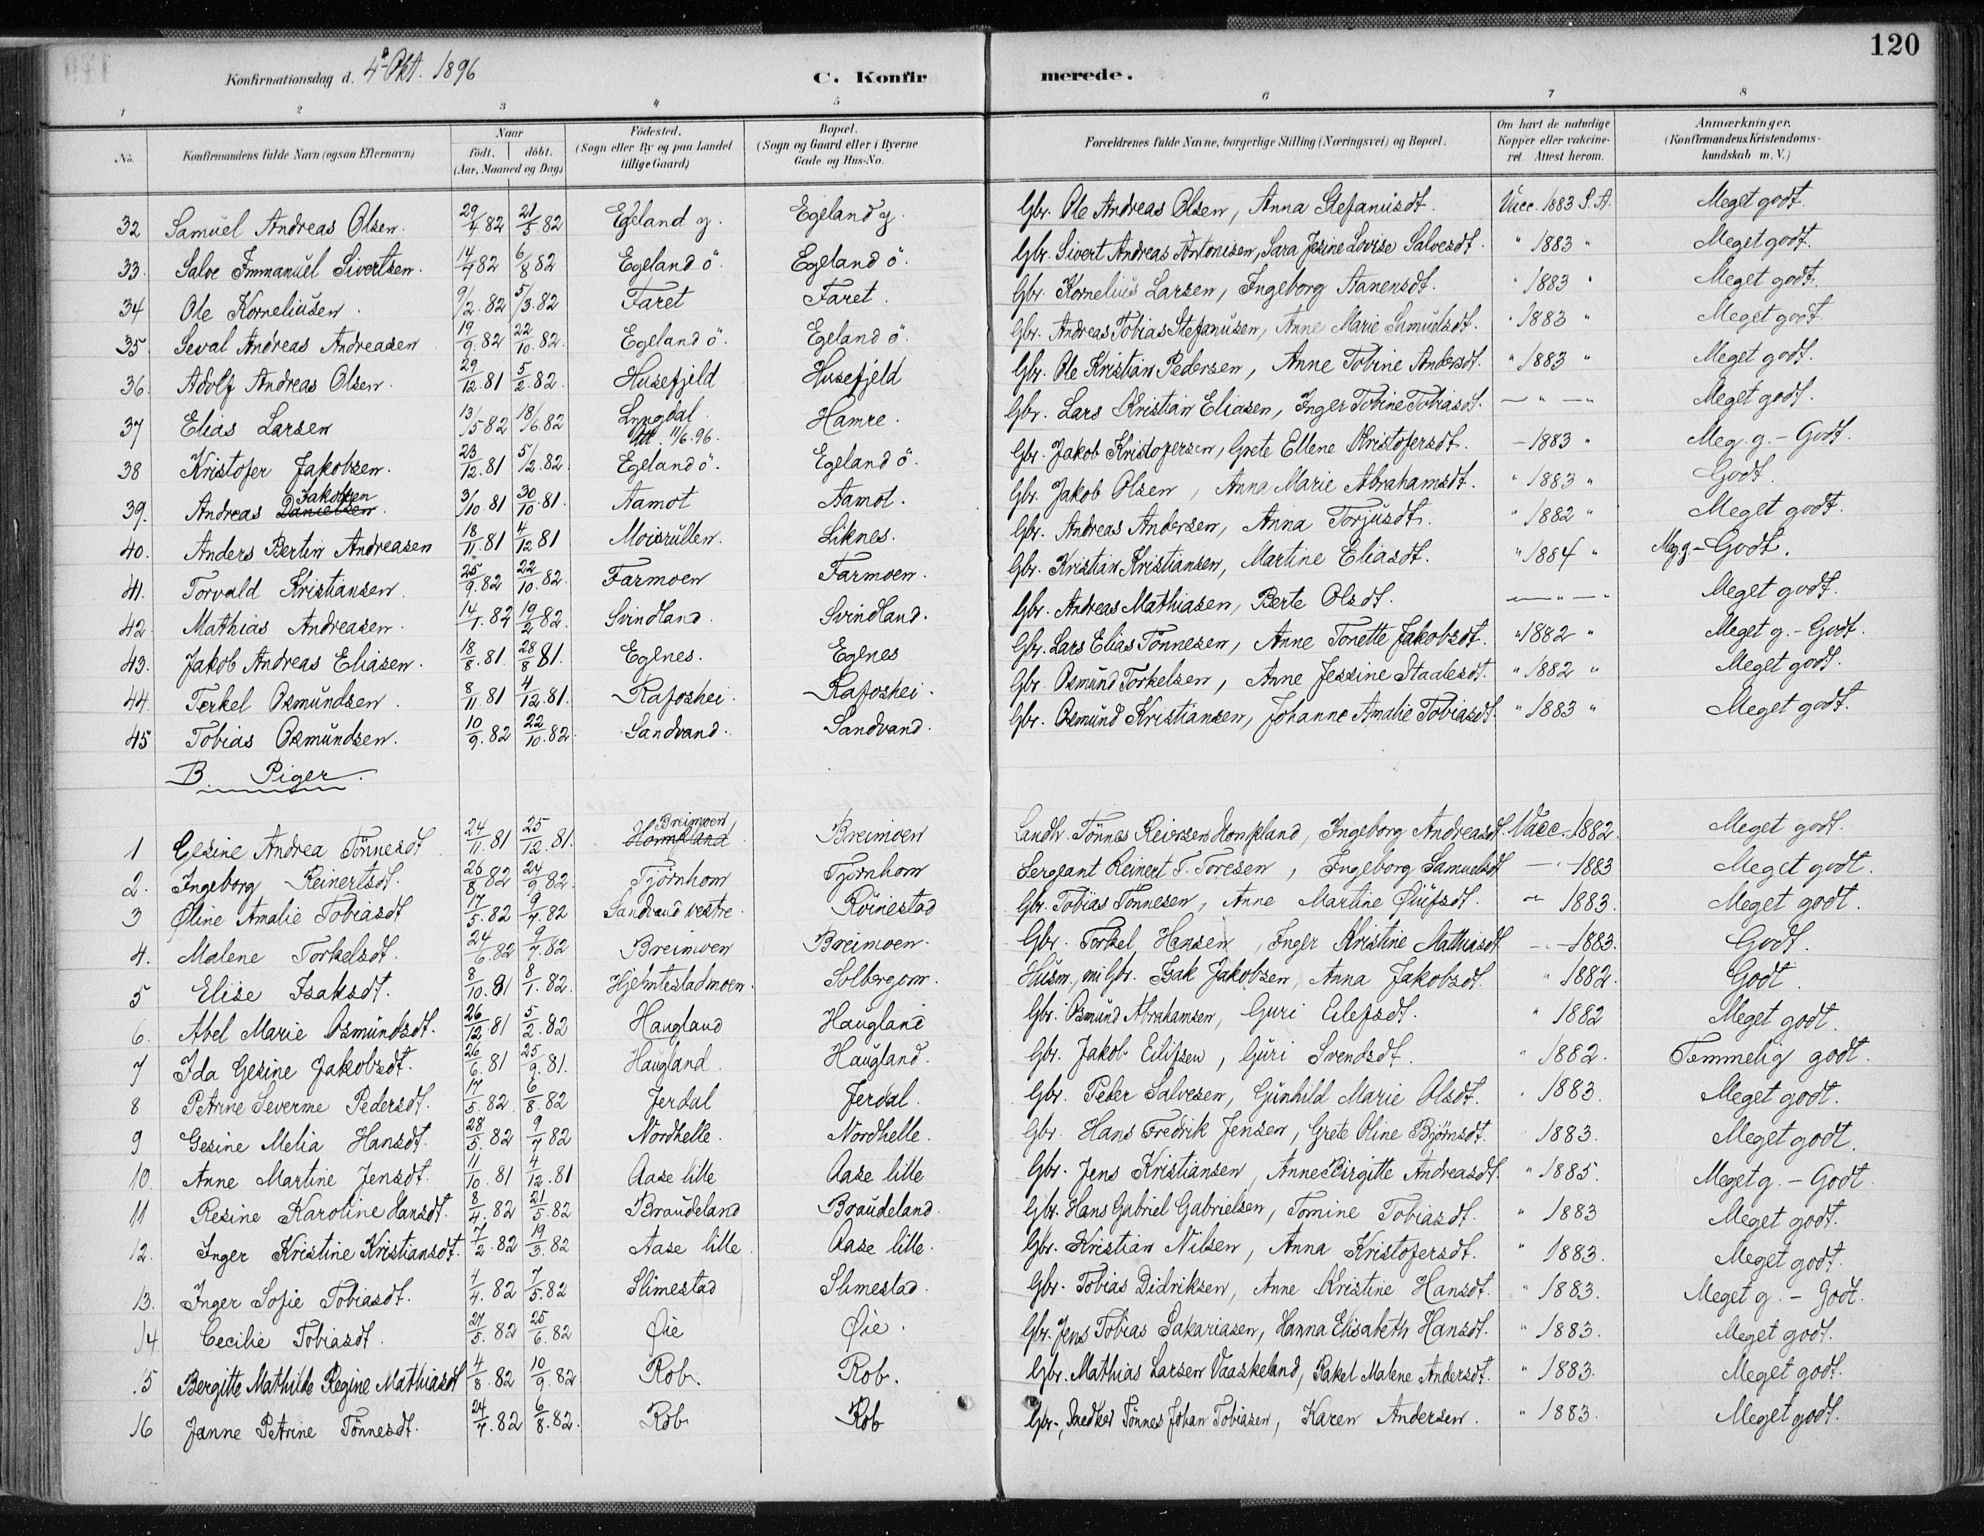 120
Konfirmationsdag d. 4de Okt. 1896 C. Konfirmerede.
1 2 3 4 5 6 7 8
No. Konfirmandens fulde Navn (ogsaa Efternavn) Naar født. døbt. (Aar, Maaned og Dag) Fødested. (Sogn eller By og paa Landet tillige Gaard) Bopæl. (Sogn og Gaard eller i Byerne Gade og Hus-No. Forældrenes fulde Navne, borgerlige Stilling (Næringsvei) og Bopæl. Om havt de naturlige Kopper eller vakcineret. Attest herom. Anmærkninger. (Konfirmandens Kristendomskundskab m. V.)
32 Samuel Andreas Olsen. 29/4 82 21/5 82 Egeland y. Egeland y. Gbr. Ole Andreas Olsen, Anna Stefanusdt. Vacc. 1883 S.A. Meget godt.
33. Salve Immanuel Sivertsen. 14/7 82 6/8 82 Egeland ö. Egeland ö. Gbr. Sivert Andreas Antonisen, Sara Jesine Lovise Salvesdt. " 1883 " Meget godt.
34 Ole Korneliusen. 9/2. 82 5/3. 82 Faret Faret. Gbr. Kornelius Larsen, Ingeborg Aanensdt. " 1883 " Meget godt.
35. Seval Andreas Andreasen 19/9. 82 22/10. 82. Egeland ö. Egeland ö. Gbr. Andreas Tobias Stefanusen, Anne Marie Samuelsdt. " 1883 " Meget godt
36. Adolf Andreas Olsen. 29/12. 81 5/2. 82. Husefjeld Husefjeld Gbr. Ole Kristian Pedersen, Anne Tobine Andersdt. " 1883 " Meget godt.
37 Elias Larsen 13/5 82 18/6. 82 Lyngdal Att. 11/6. 96. Hamre. Gbr. Lars Kristian Eliasen, Inger Tobine Tobiasdt. — " — " Meget godt.
38 Kristofer Jakobsen. 23/12. 81 5/2. 82. Egeland ö. Egeland ö. Gbr. Jakob Kristofersen, Grete Ellene Kristofersdt. — 1883 " Meg. g. - Godt.
39. Andreas Danielsen Jakobsen. 3/10 81 30/10 81. Aamot Aamot. Gbr. Jakob Olsen, Anna Marie Abrahamsdt. " 1883 " Godt.
40. Anders Bertin Andreasen 18/11. 81 4/12 81 Moisrullen. Liknes. Gbr. Andreas Andersen, Anna Torjusdt. " 1882 " Meget godt.
41. Torvald Kristiansen. 25/9. 82 22/10. 82. Farmoen Farmoen. Gbr. Kristian Kristiansen, Martine Eliasdt. " 1884 " Meg g - Godt.
42. Mathias Andreasen. 14/1. 82 19/2 82. Svindland. Svindland. Gbr. Andreas Mathiasen, Berte Olsdt. — " — " Meget godt.
43. Jakob Andreas Eliasen. 18/8. 81. 28/8 81. Egenes. Egenes Gbr. Lars Elias Tönnesen, Anne Tonette Jakobsdt. " 1882 " Meget g. - Godt.
44. Terkel Osmundsen. 8/11. 81 4/12. 81. Rafoshei. Rafoshei. Gbr. Osmund Torkelsen, Anne Jessine Staalesdt. " 1882 " Meget godt.
45 Tobias Osmundsen. 10/9. 82 22/10. 82. Sandvand. Sandvand. Gbr. Osmund Kristiansen, Johanne Amalie Tobiasdt. " 1883 " Meget godt.
B Piger.
1 Gesine Andrea Tönnesdt 24/11. 81 25/12. 81. Hompland Breimoen, Breimoen Landh. Tönnes Reiersen Hompland, Ingeborg Andreasdt. Vacc. 1882. Meget godt.
2. Ingeborg Reinertsdt. 26/8 82 24/9. 82. Tjörnhom Tjörnhom Sergeant Reinert T. Toresen, Ingeborg Samuelsdt — " - 1883 Meget godt.
3 Oline Amalie Tobiasdt 17/5. 82 9/7. 82 Sandvand vestre. Röinestad Gbr. Tobias Tönnesen, Anne Martine Olufsdt. " 1883. Meget godt.
4. Malene Torkelsdt. 24/6. 82 9/7. 82 Breimoen Breimoen. Gbr. Torkel Hansen, Inger Kristine Mathiasdt - " - 1883. Godt.
5 Elise Isaksdt. 8/10. 81 8/1. 82. Hjelmtestadmoen. Solbergsm. Husm., nu Gbr. Isak Jakobsen, Anna Jakobsdt. " 1882. Godt
6. Abel Marie Osmundsdt. 26/12. 81 5/2. 82 Haugland Haugland Gbr. Osmund Abrahamsen, Guri Eilefsdt. " 1882 Meget godt.
7 Ida Gesine Jakobsdt. 26/6. 81 25/9. 81. Haugland. Haugland. Gbr. Jakob Eilifsen, Guri Svendsdt. " 1882. Temmelig godt.
8 Petrine Severine Pedersdt. 17/5. 82. 6/8. 82 Jerdal Jerdal. Gbr. Peder Salvesen, Gunhild Marie Olsdt. " 1883. Meget godt.
9 Gesine Melia Hansdt. 28/5. 82 9/7 82 Nordhelle. Nordhelle. Gbr. Hans Fredrik Jensen, Grete Oline Björnsdt. " 1883. Meget godt.
10. Anne Martine Jensdt. 11/10. 81 4/12. 81 Aase lille Aase lille Gbr. Jens Kristiansen, Anne Birgitte Andreasdt. " 1885. Meget g. - Godt
11 Resine Karoline Hansdt. 8/4. 82 21/5. 82 Braudeland Braudeland. Gbr. Hans Gabriel Gabrielsen, Tomine Tobiasdt. " 1883 Meget godt.
12. Inger Kristine Kristiansdt. 7/2. 82 19/3. 82 Aase lille. Aase lille. Gbr. Kristian Nilsen, Anna Kristofersdt. " 1883. Meget godt.
13. Inger Sofie Tobiasdt. 7/4. 82 7/5. 82 Slimestad Slimestad. Gbr. Tobias Didriksen, Anne Kristine Hansdt. " 1883. Meget g. - Godt.
14 Cecilie Tobiasdt. 27/5. 82 25/6. 82 Øie Øie. Gbr. Jens Tobias Sakariasen, Hanna Elisabeth Hansdt. " 1883. Meget godt.
15 Bergitte Mathilde Regine Mathiasdt 4/8. 82 10/9. 82 Rob. Rob. Gbr. Mathias Larsen Vaaskeland, Rakel Malene Andersdt. " 1883. Meget godt.
16 Janne Petrine Tönnesdt. 24/7. 82 6/8. 82. Rob Rob Gbr., Snedker Tönnes Johan Tobiasen, Karen Andersen. " 1883. Meget godt.